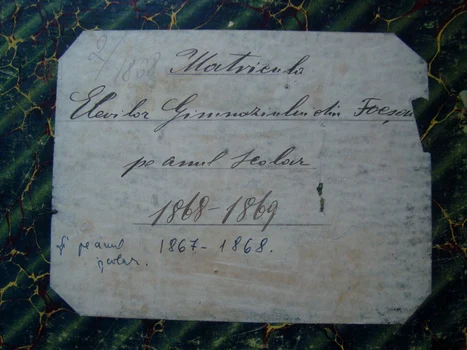 2/1868
Matricula
Elevilor Gimnaziului din Focșani
pe anul școlar
1868-1869
și pe anul 1867-1868.
școlar.